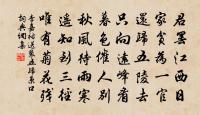 君罷江西日
家貧為一官
還歸五陵去
只向遠峰看
暮色催人別
秋風待雨寒
遙知到三徑
唯有菊花殘
李嘉祐送裴五歸京口